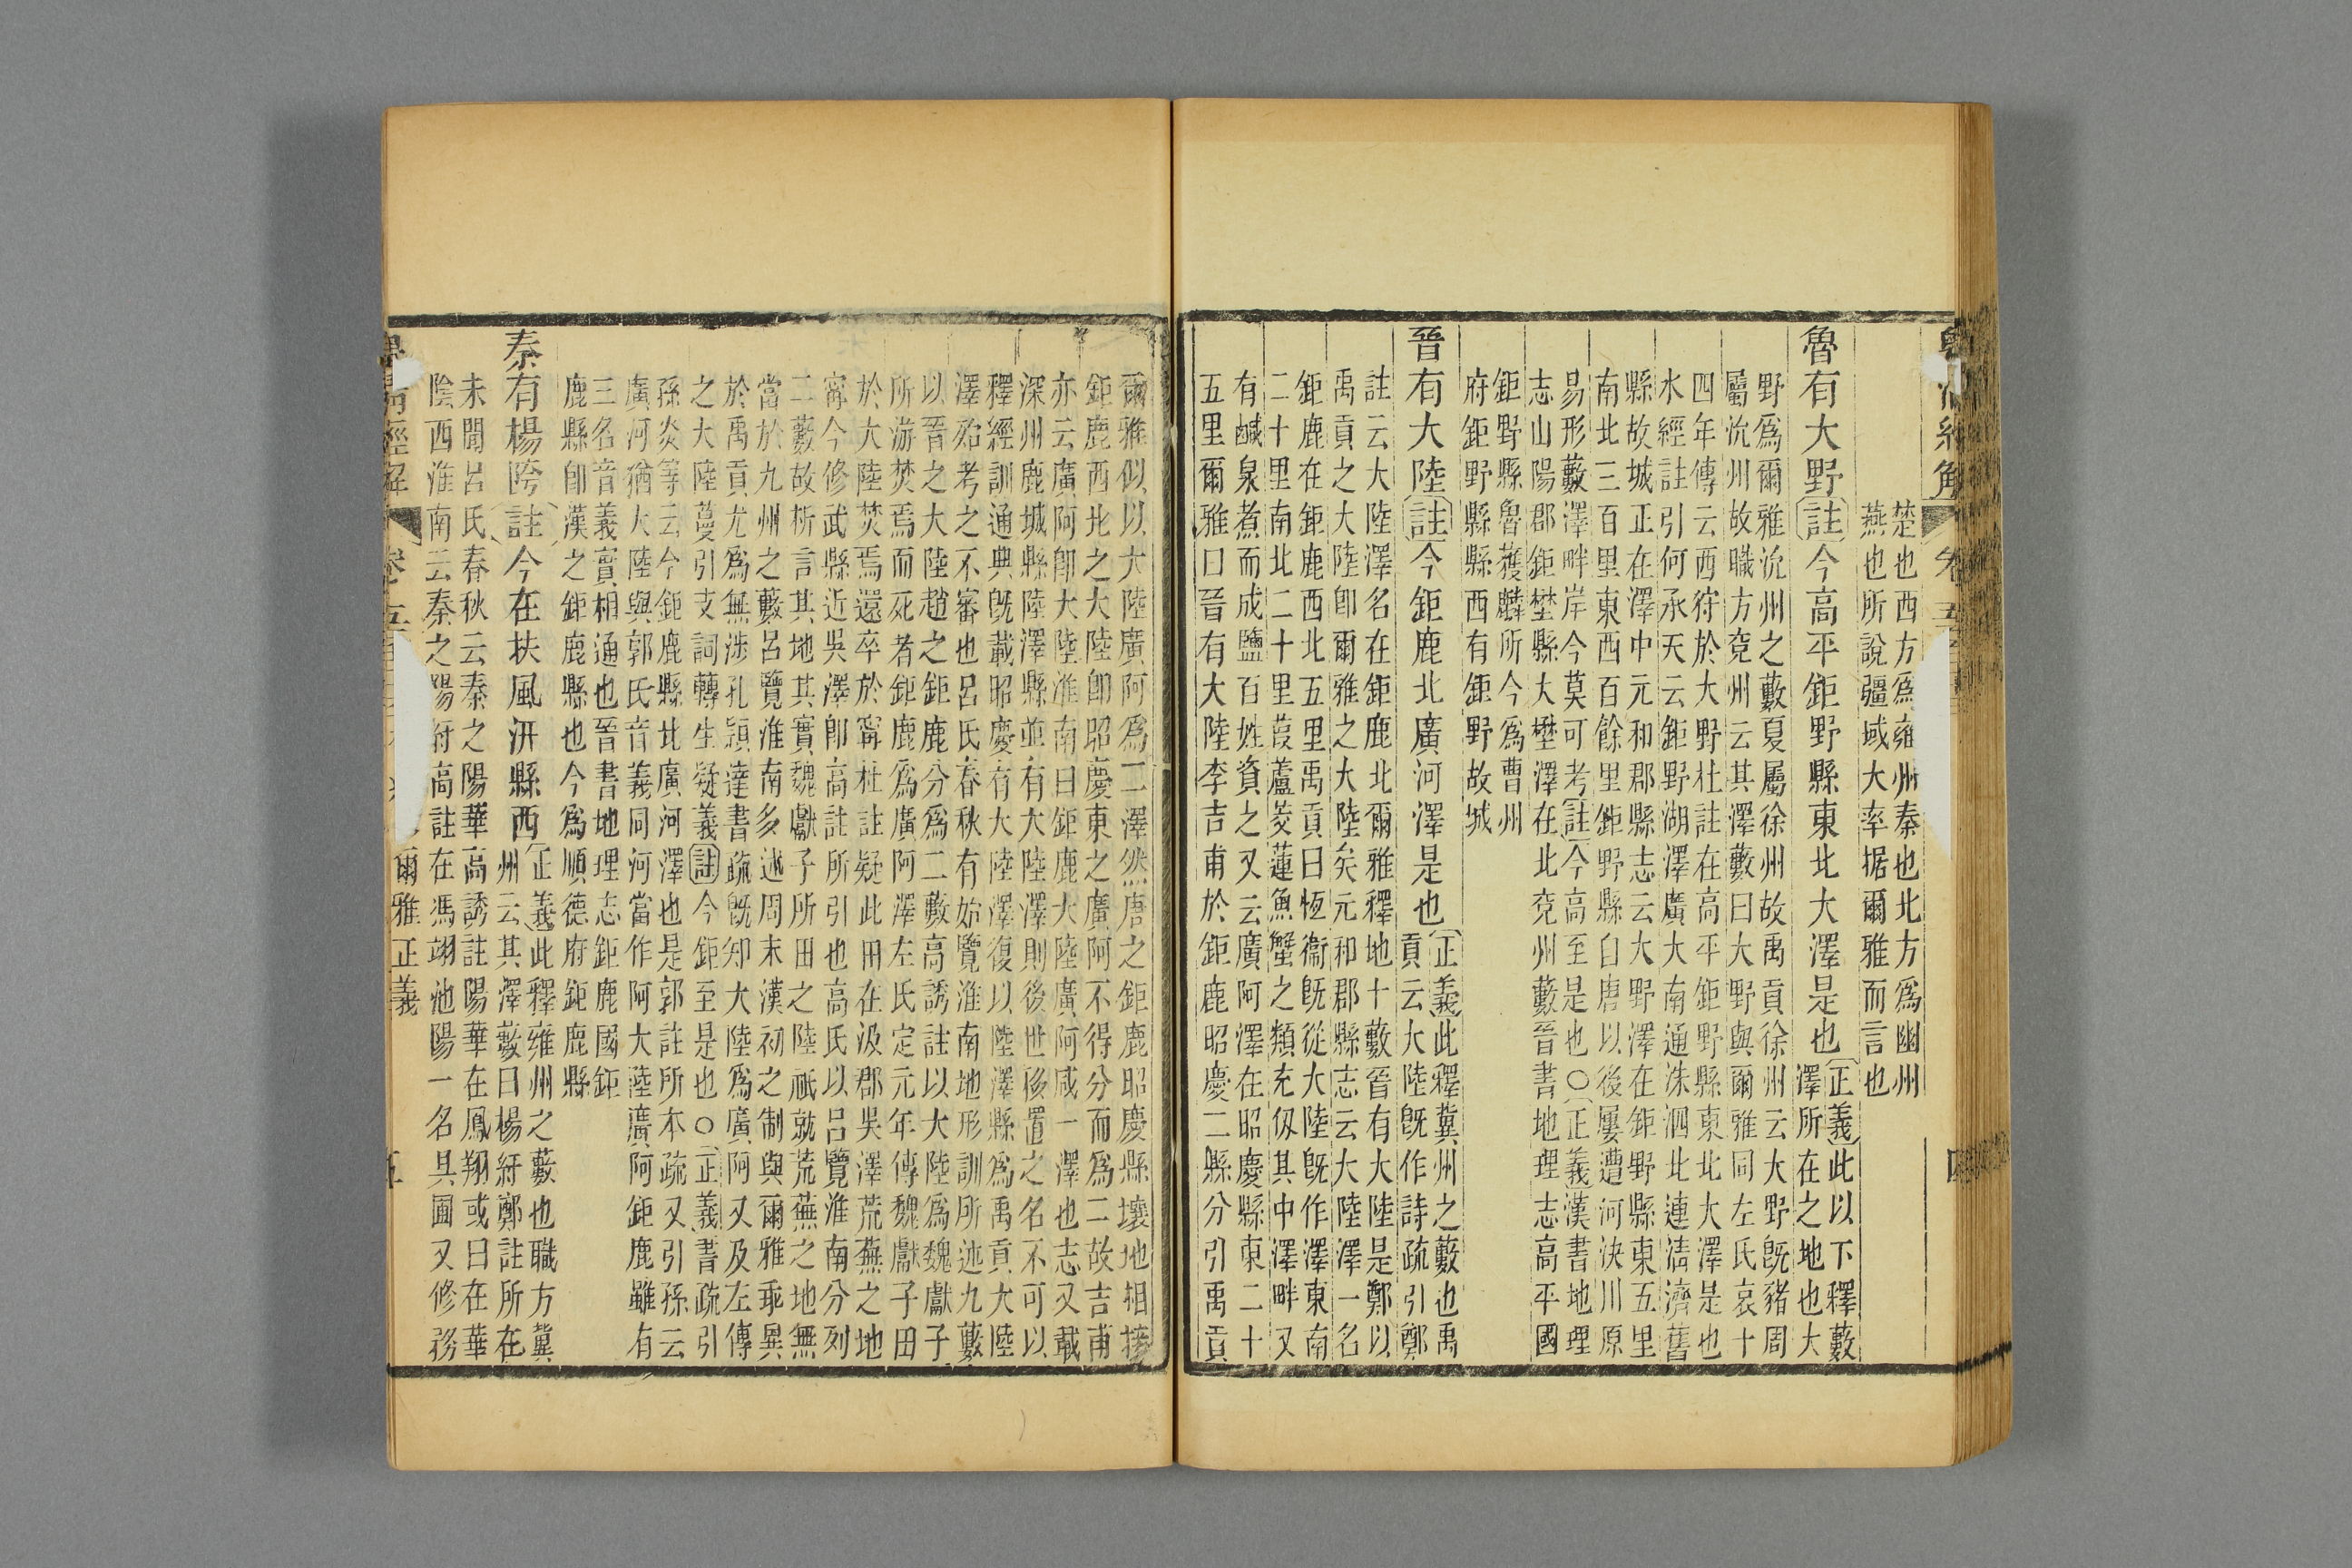 皇清經解 卷五 四
楚也西方爲雍州秦也北方爲幽州
燕也所說疆域大率据爾雅而言也
魯有大野註今高平鉅野縣東北大澤是也正義此以下釋藪
澤所在之地也大
野爲爾雅沇州之藪夏屬徐州故禹貢徐州云大野旣豬周
屬沇州故職方兗州云其澤藪曰大野與爾雅同左氏哀十
四年傳云西狩於大野杜註在高平鉅野縣東北大澤是也
水經註引何承天云鉅野湖澤廣大南通洙泗北連淸濟舊
縣故城正在澤中元和郡縣志云大野澤在鉅野縣東五里
南北三百里東西百餘里鉅野縣自唐以後屢遭河決川原
易形藪澤畔岸今莫可考註今高至是也○正義漢書地理
志山陽郡鉅壄縣大壄澤在北兗州藪晉書地理志高平國
鉅野縣魯獲麟所今爲曹州
府鉅野縣縣西有鉅野故城
晉有大陸註今鉅鹿北廣河澤是也正義此釋冀州之藪也禹
貢云大陸旣作詩疏引鄭
註云大陸澤名在鉅鹿北爾雅釋地十藪晉有大陸是鄭以
禹貢之大陸卽爾雅之大陸矣元和郡縣志云大陸澤一名
鉅鹿在鉅鹿西北五里禹貢曰恆衞旣從大陸旣作澤東南
二十里南北二十里葭蘆茭蓮魚蟹之類充仭其中澤畔又
有鹹泉煮而成鹽百姓資之又云廣阿澤在昭慶縣東二十
五里爾雅曰晉有大陸李吉甫於鉅鹿昭慶二縣分引禹貢
爾雅似以大陸廣阿爲二澤然唐之鉅鹿昭慶縣壤地相接
鉅鹿西北之大陸卽昭慶東之廣阿不得分而爲二故吉甫
亦云廣阿卽大陸淮南曰鉅鹿大陸廣阿咸一澤也志又載
深州鹿城縣陸澤縣並有大陸澤則後世移置之名不可以
釋經訓通典旣載昭慶有大陸澤復以陸澤縣爲禹貢大陸
澤殆考之不審也呂氏春秋有始覽淮南地形訓所述九藪
以晉之大陸趙之鉅鹿分爲二藪高誘註以大陸爲魏獻子
所游焚焉而死者鉅鹿爲廣阿澤左氏定元年傳魏獻子田
於大陸焚焉還卒於甯杜註疑此田在汲郡吳澤荒蕪之地
甯今修武縣近吳澤卽高註所引也高氏以呂覽淮南分列
二藪故析言其地其實魏獻子所田之陸祇就荒蕪之地無
當於九州之藪呂覽淮南多述周末漢初之制與爾雅乖異
於禹貢尤爲無涉孔穎達書疏旣知大陸爲廣阿又及左傳
之大陸蔓引支詞轉生疑義註今鉅至是也○正義書疏引
孫炎等云今鉅鹿縣北廣河澤也是郭註所本疏又引孫云
廣河猶大陸與郭氏音義同河當作阿大陸廣阿鉅鹿雖有
三名音義實相通也晉書地理志鉅鹿國鉅
鹿縣卽漢之鉅鹿縣也今爲順德府鉅鹿縣
秦有楊陓註今在扶風汧縣西正義此釋雍州之藪也職方冀
州云其澤藪曰楊紆鄭註所在
未聞呂氏春秋云秦之陽華高誘註陽華在鳳翔或曰在華
陰西淮南云秦之陽紆高註在馮翊池陽一名具圃又修務
皇淸經解 卷五 爾雅正義 五